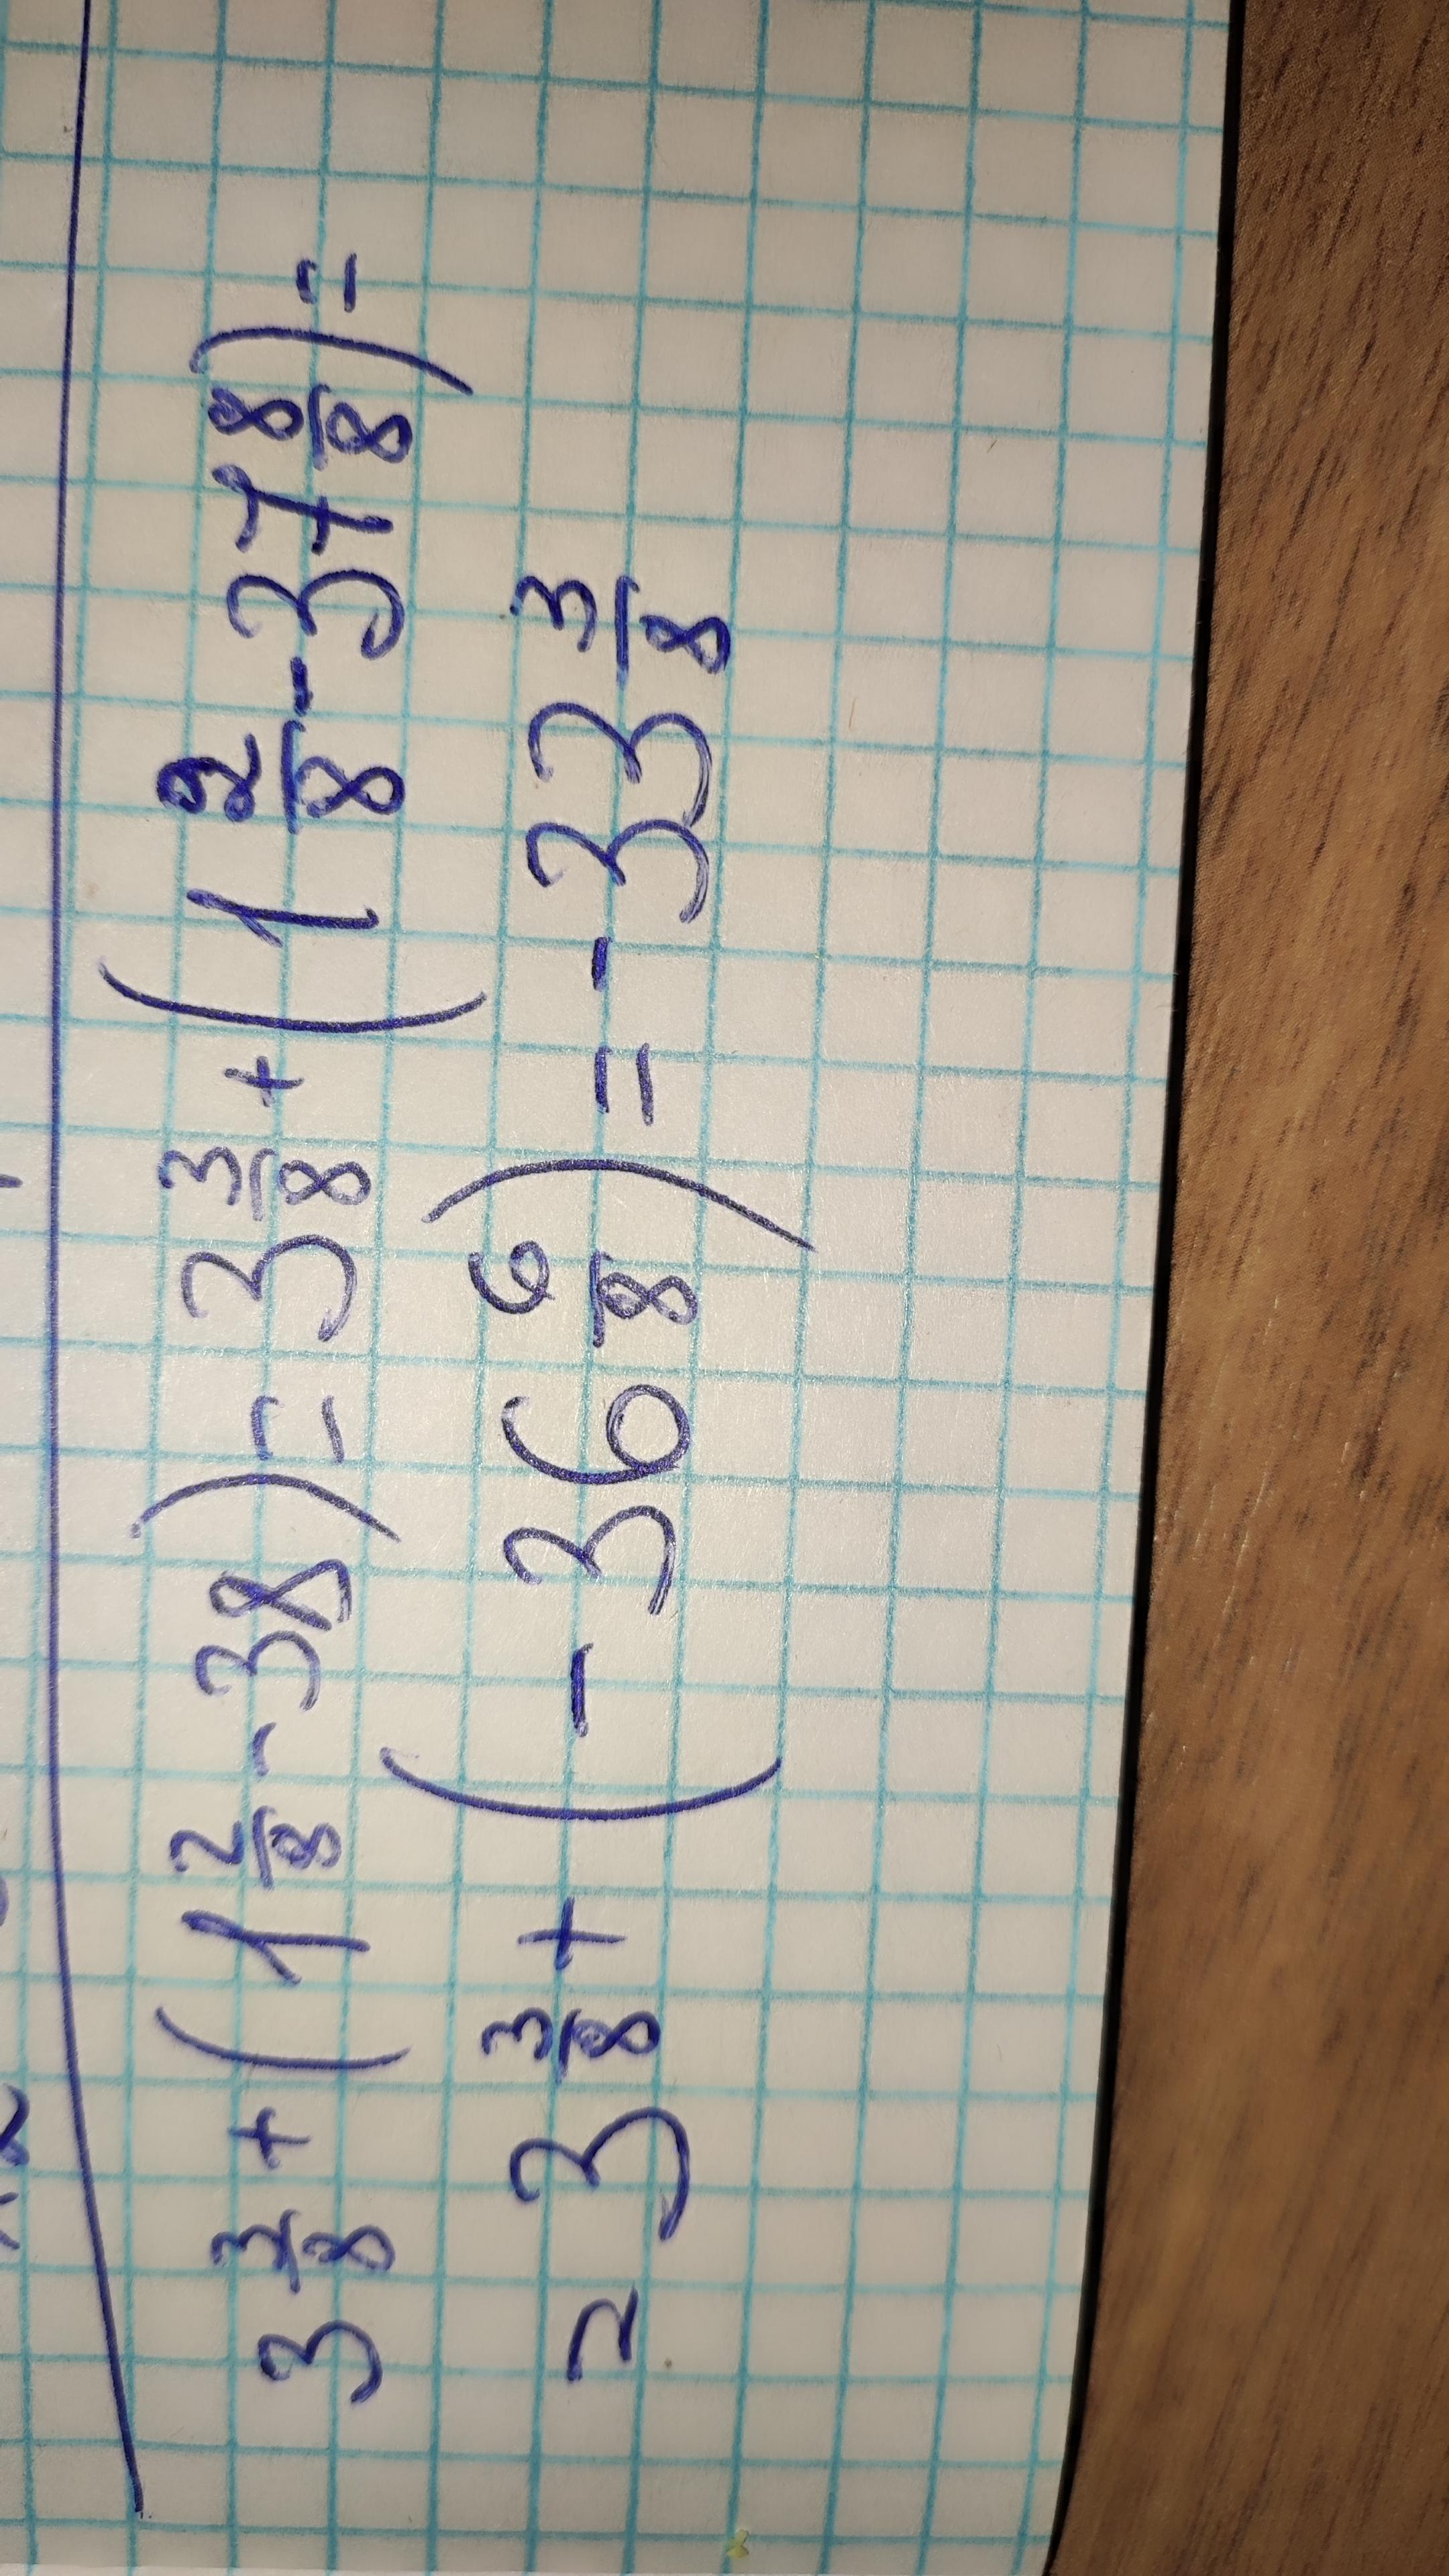 3 3/8 + (1 2/8 - 38) = 3 3/8 + (1 2/8 - 37 8/8) =
= 3 3/8 + (- 36 6/8) = - 33 3/8